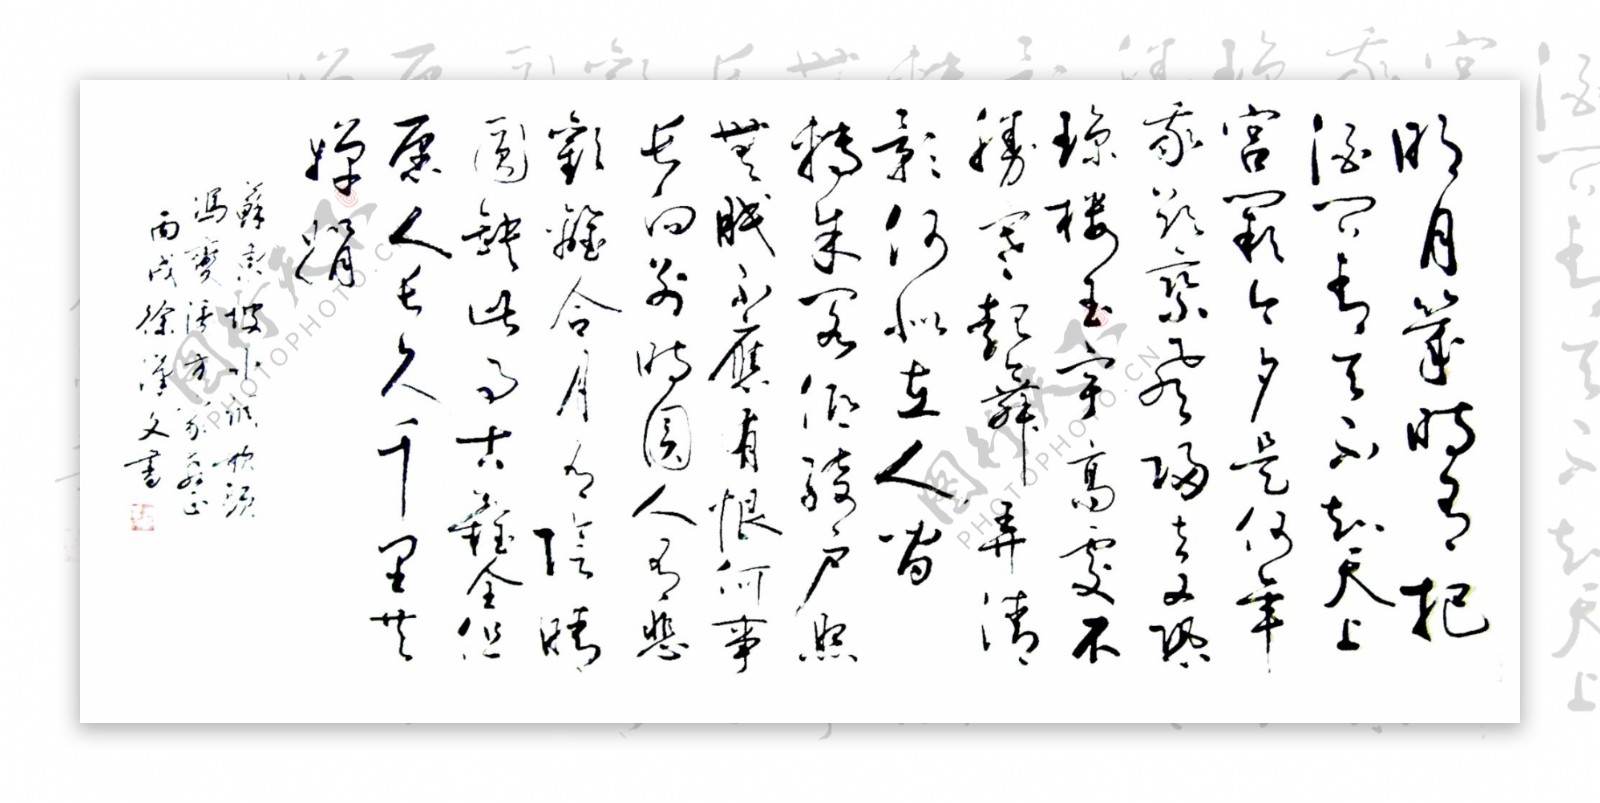 明月幾時有把
酒問青天不知天上
宮闕今夕是何年
我欲乘風歸去又恐
琼楼玉宇高處不
勝寒起舞弄清
影何似在人間
轉朱閣低綺户照
無眠不應有恨何事
長向别時圓人有悲
歡離合月有陰晴
圓缺此事古難全但
愿人長久千里共
嬋娟
蘇東坡水调歌頭
馮 方家 正
丙戌徐漢文書
图行天下
PHOTOPHOTO.CN
图行天下
PHOTOPHOTO.CN